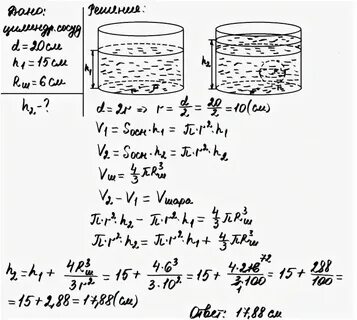 Дано:
цилиндр. сосуд
d = 20 см
h₁ = 15 см
Rш = 6 см
h₂ - ?
Решение:
h₁
h₂
d = 2r ⇒ r = d/2 = 20/2 = 10 (см)
V₁ = Sосн·h₁ = π·r²·h₁
V₂ = Sосн·h₂ = π·r²·h₂
Vш = 4/3 πR³ш
V₂ - V₁ = Vшара
π·r²·h₂ - π·r²·h₁ = 4/3 πR³ш
π·r²·h₂ = π·r²·h₁ + 4/3 πR³ш
h₂ = h₁ + 4R³ш/3r² = 15 + 4·6³/3·10² = 15 + 4·216/3·100 = 15 + 288/100 =
72
1
= 15 + 2,88 = 17,88 (см)
Ответ: 17,88 см